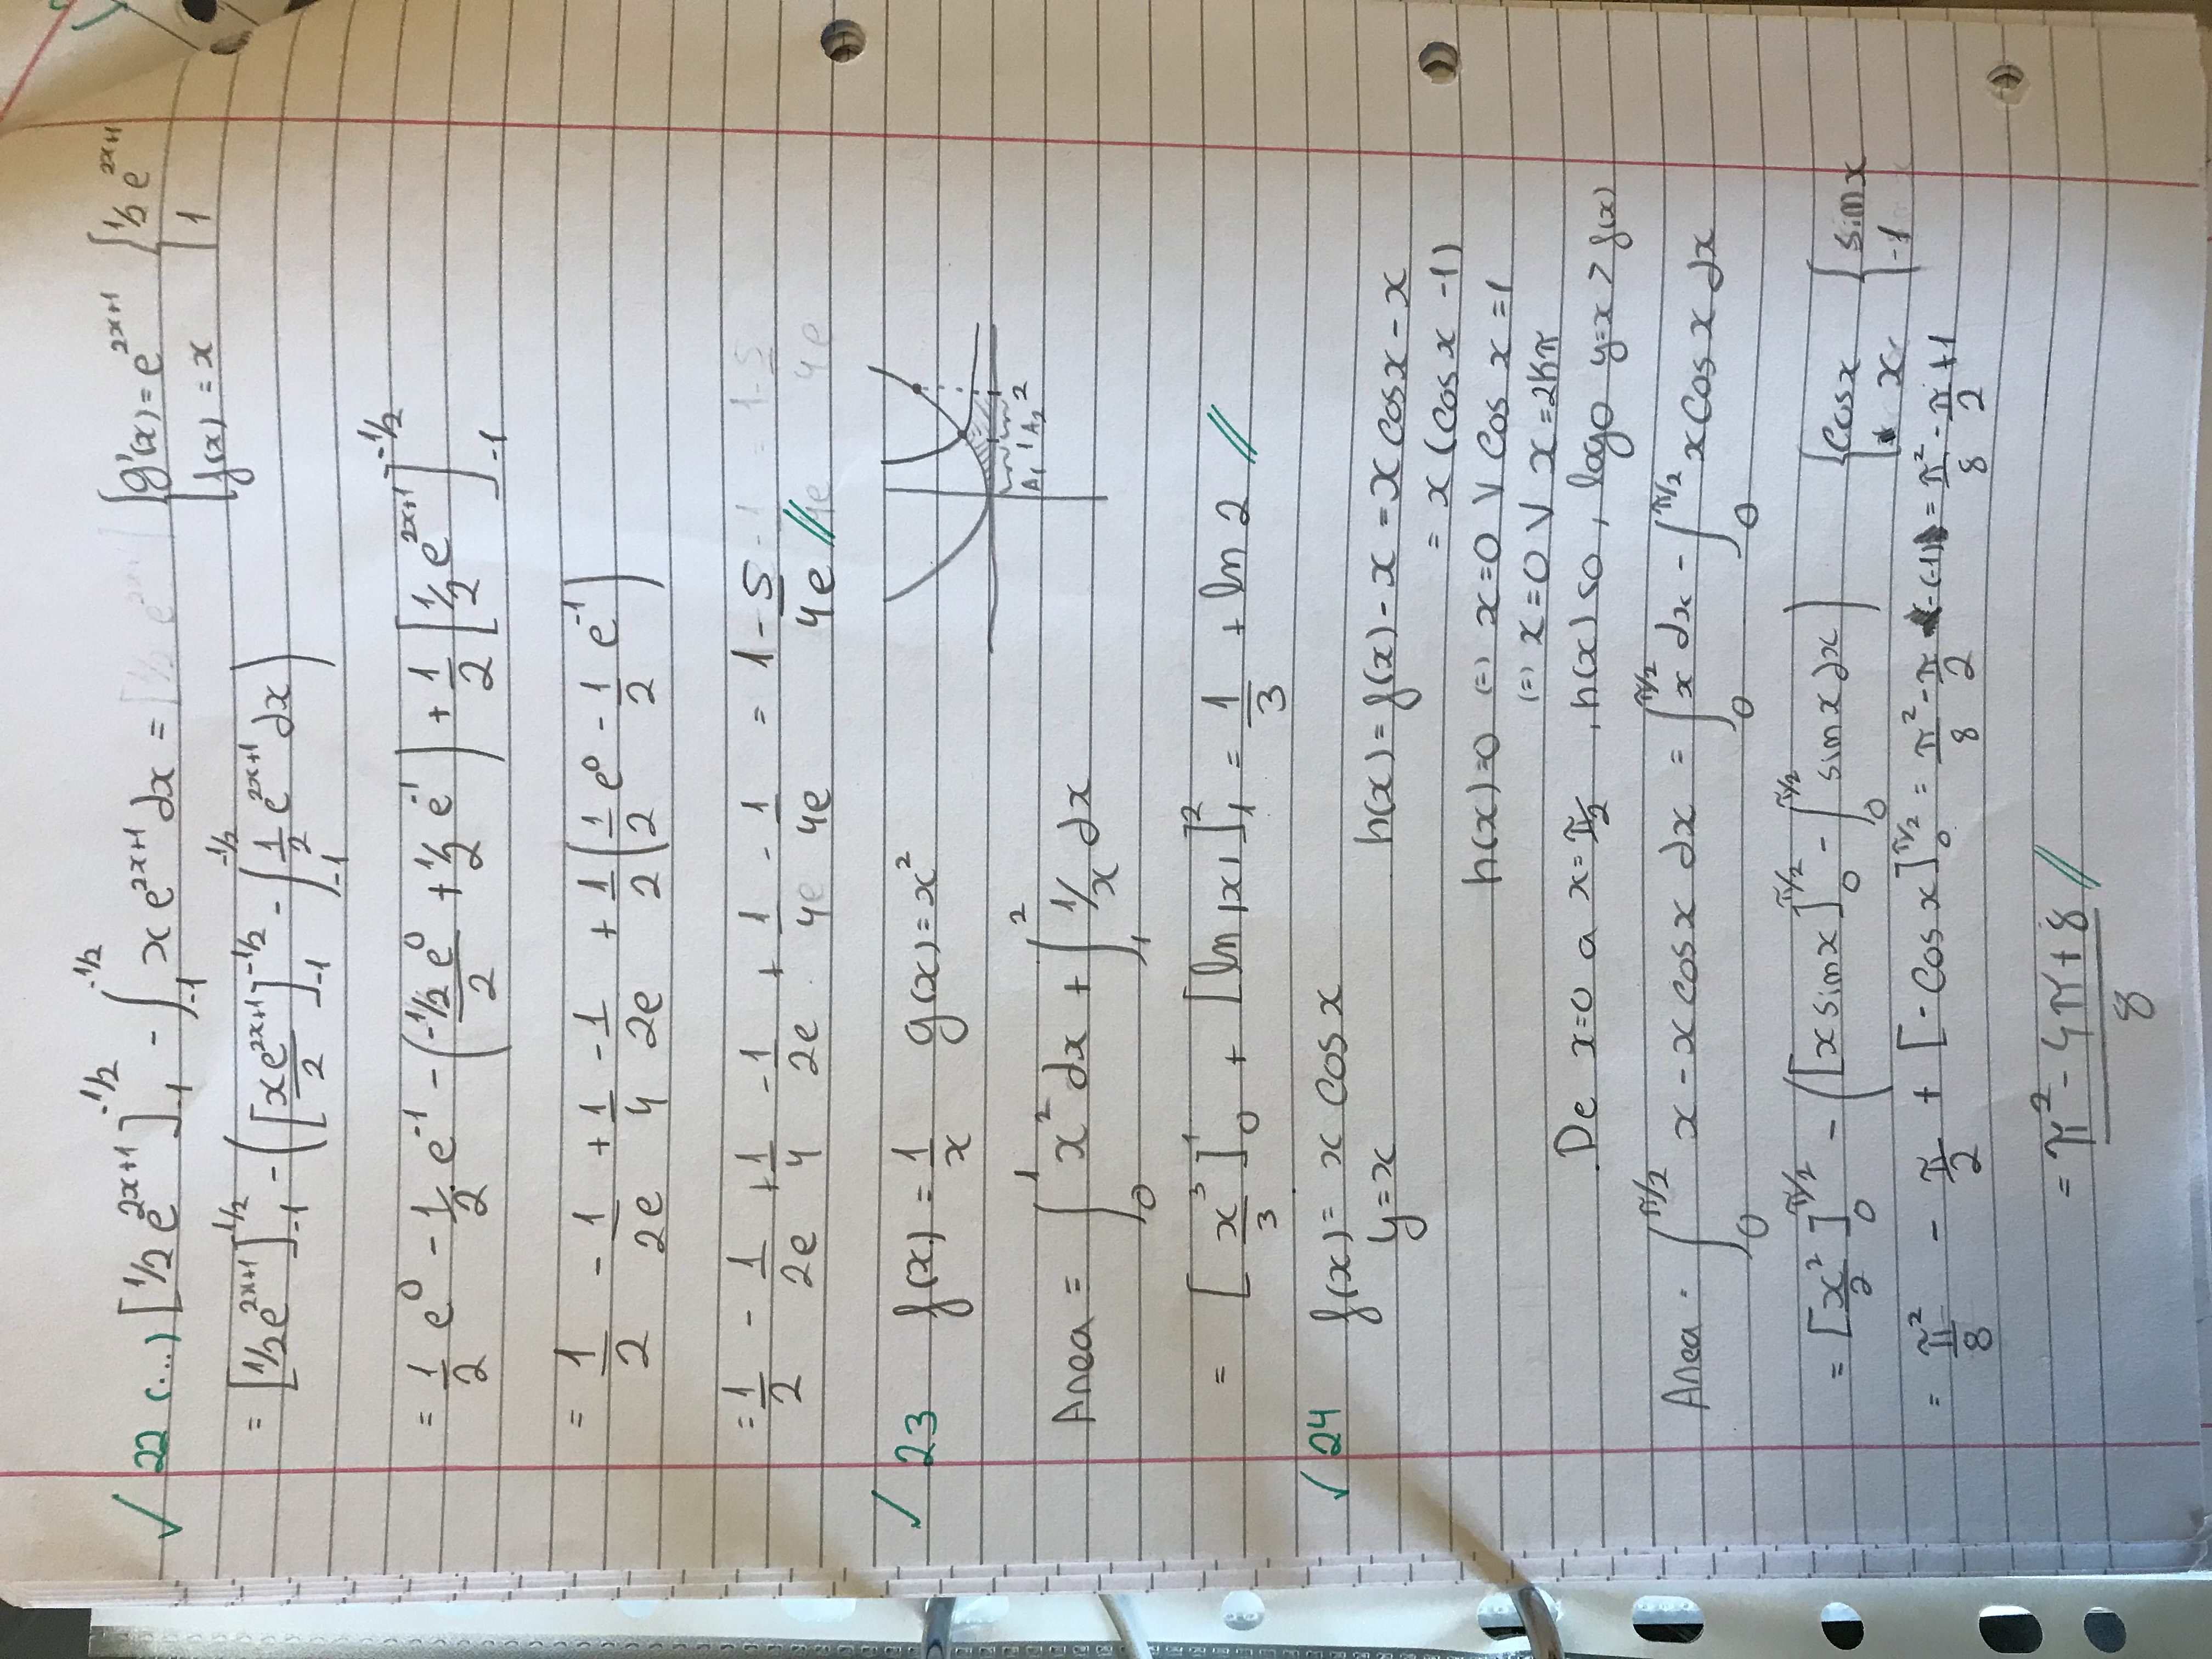 ✓ 22 (...) [1/2 e^{2x+1}]_{-1}^{-1/2} - ∫_{-1}^{-1/2} x e^{2x+1} dx = { g'(x) = e^{2x+1} { 1/2 e^{2x+1}
{ f(x) = x { 1
= [1/2 e^{2x+1}]_{-1}^{-1/2} - ([x e^{2x+1}/2]_{-1}^{-1/2} - ∫_{-1}^{-1/2} 1/2 e^{2x+1} dx)
= 1/2 e^0 - 1/2 e^{-1} - (-1/2 e^0/2 + 1/2 e^{-1}) + 1/2 [1/2 e^{2x+1}]_{-1}^{-1/2}
= 1/2 - 1/2e + 1/4 - 1/2e + 1/2 (1/2 e^0 - 1/2 e^{-1})
= 1/2 - 1/2e + 1/4 - 1/2e + 1/4 - 1/4e = 1 - 5/4e //
✓ 23 f(x) = 1/x g(x) = x²
A₁ 1 A₂ 2
Area = ∫_0^1 x² dx + ∫_1^2 1/x dx
= [x³/3]_0^1 + [ln |x|]_1^2 = 1/3 + ln 2 //
✓ 24 f(x) = x cos x
y = x h(x) = f(x) - x = x cos x - x
= x (cos x - 1)
h(x) = 0 (=) x = 0 ∨ cos x = 1
(=) x = 0 ∨ x = 2kπ
De x=0 a x = π/2, h(x) ≤ 0, logo y=x > f(x)
Area = ∫_0^{π/2} x - x cos x dx = ∫_0^{π/2} x dx - ∫_0^{π/2} x cos x dx
= [x²/2]_0^{π/2} - ([x sin x]_0^{π/2} - ∫_0^{π/2} sin x dx) { cos x { sin x
{ x { -1
= π²/8 - π/2 + [-cos x]_0^{π/2} = π²/8 - π/2 -(-1) = π²/8 - π/2 + 1
= π² - 4π + 8/8 //